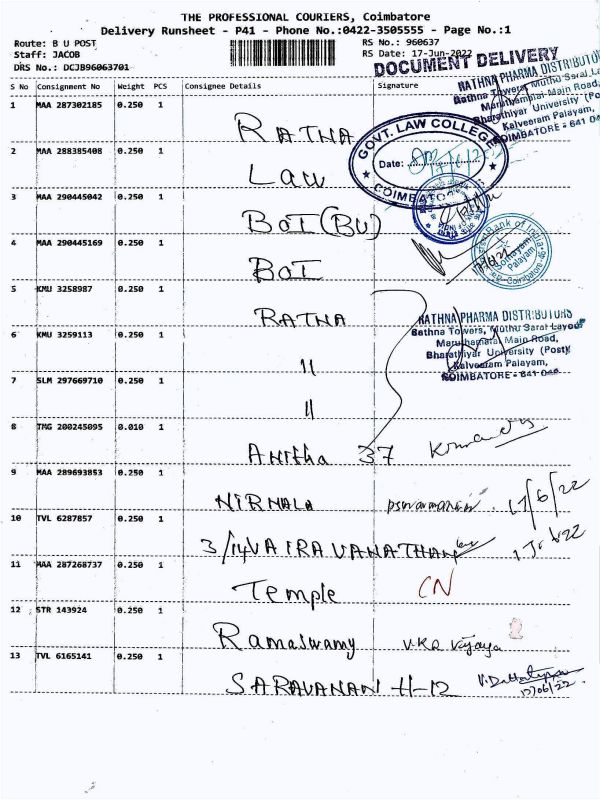 THE PROFESSIONAL COURIERS, Coimbatore
Delivery Runsheet - P41 - Phone No.:0422-3505555 - Page No.:1
Route: B U POST
Staff: JACOB
DRS No.: DCJB96063701
RS No.: 960637
RS Date: 17-Jun-2022
DOCUMENT DELIVERY
RATHNA PHARMA DISTRIBUTORS
Rathna Towers, Muthu Saral Layout
Maruthamalai Main Road,
Bharathiyar University (Post)
Kalveeram Palayam,
COIMBATORE - 641 04
S No Consignment No Weight PCS Consignee Details Signature
1 MAA 287302185 0.250 1 RATNA
GOVT. LAW COLLEGE
Date:
COIMBATORE
2 MAA 288385408 0.250 1 Law
3 MAA 290445042 0.250 1 BOI (BU)
4 MAA 290445169 0.250 1 BOI
Bank of India
5 KMU 3258987 0.250 1 RATNA
RATHNA PHARMA DISTRIBUTORS
Rathna Towers, Muthu Saral Layout
Maruthamalai Main Road,
Bharathiyar University (Post)
Kalveeram Palayam,
COIMBATORE - 641 046
6 KMU 3259113 0.250 1 11
7 SLM 297669710 0.250 1 11
8 TMG 200245095 0.010 1 Anitha 37
9 MAA 289693853 0.250 1 NIRMALA 17/6/22
10 TVL 6287857 0.250 1 3/14 VAIRAVANATHAN
11 MAA 287268737 0.250 1 Temple CN
12 STR 143924 0.250 1 Ramaswamy V.K.R Vijaya
13 TVL 6165141 0.250 1 SARAVANAN H-12
17/06/22